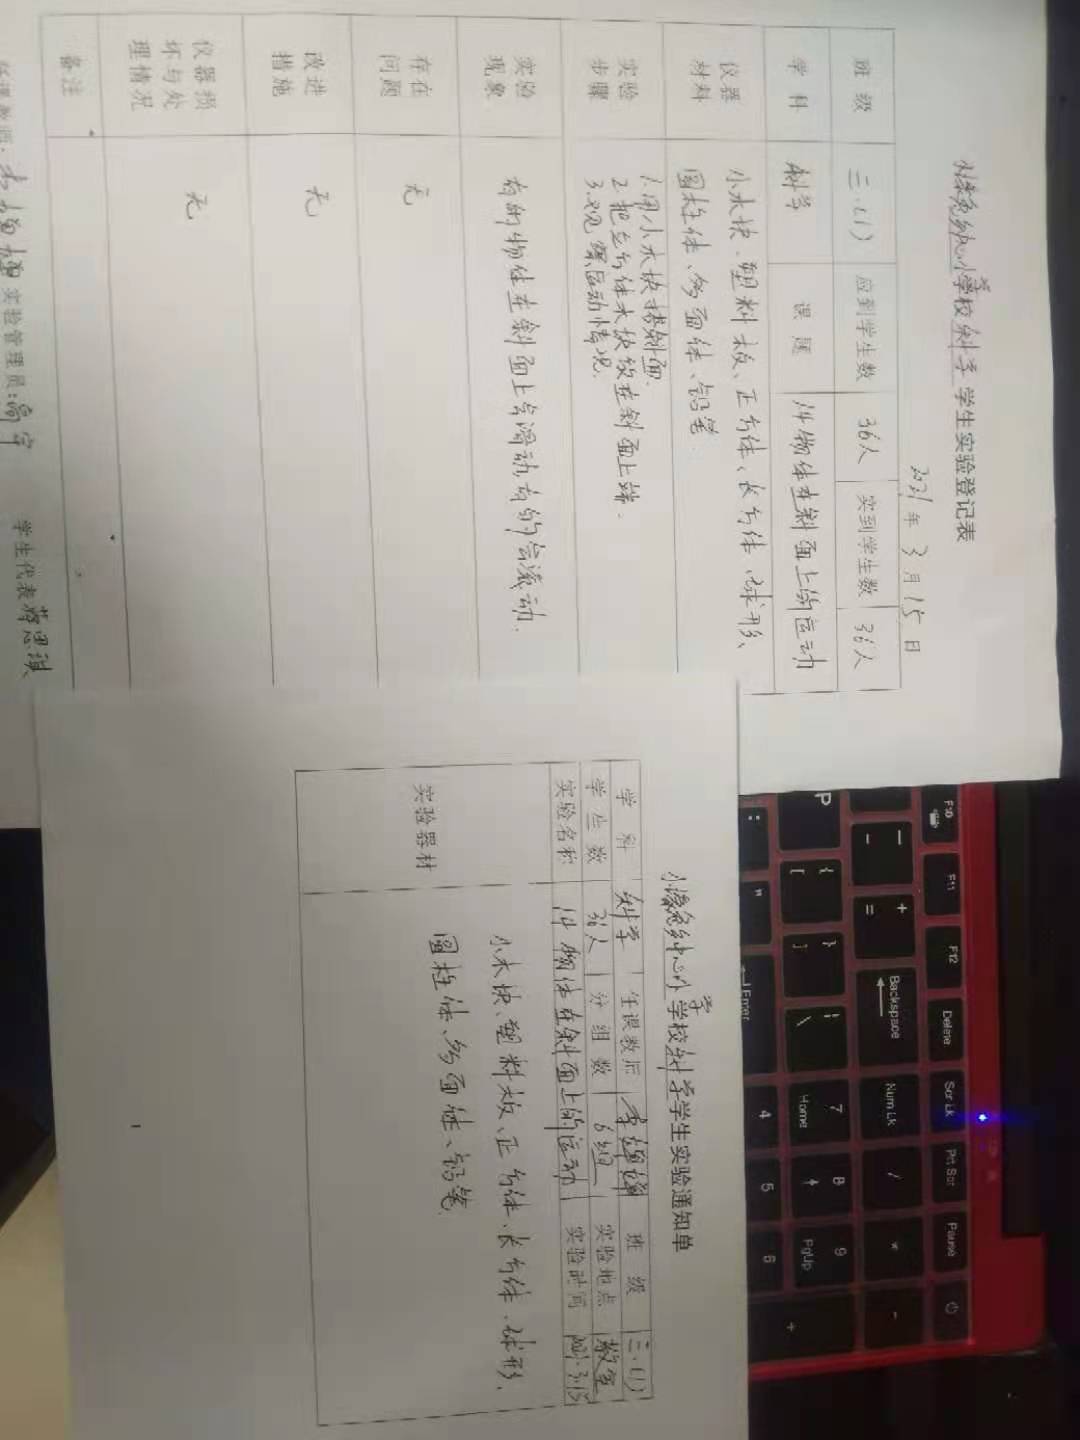 学校科学学生实验登记表
2021年3月15日
班级 三.(1) 应到学生数 36人 实到学生数 36人
学科 科学 课题 14物体在斜面上的运动
仪器材料 小木块、塑料板、正方体、长方体、球形、
圆柱体、多面体、铅笔
实验步骤 1.用小木块搭斜面.
2.把立方体木块放在斜面上端.
3.观察运动情况.
实验现象 有的物体在斜面上会滑动有的会滚动.
存在问题 无
改进措施 无
仪器损坏与处理情况 无
备注
实验管理员: 学生代表
学校科学学生实验通知单
学科 科学 任课教师 班级 三.(1)
学生数 36人 分组数 6组 实验地点 教室
实验名称 14物体在斜面上的运动 实验时间 2021.3.15
实验器材 小木块、塑料板、正方体、长方体、球形、
圆柱体、多面体、铅笔.
F10 F11 F12 Delete Scr Lk Prt Scr Pause
Backspace Num Lk / * -
P { [ } ] | \ 7 Home 8 9 PgUp +
: " Enter 4 5 6